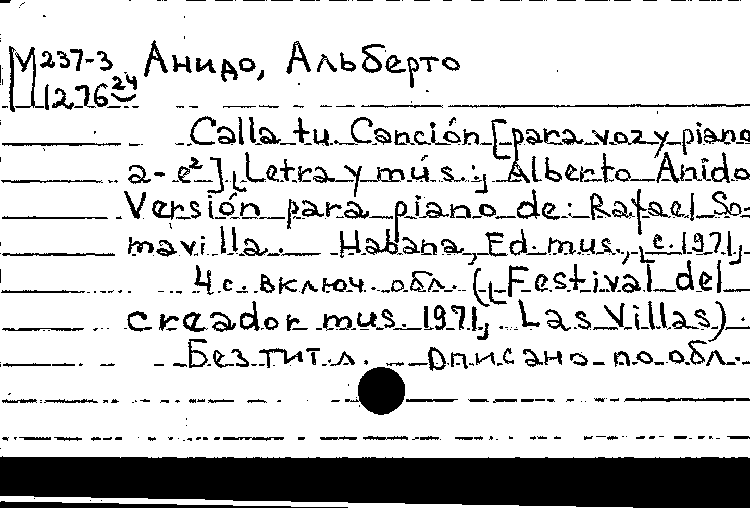 М237-3 Анидо, Альберто
1276 24
Calla tu Canción [para voz y piano
a-e²] [Letra y mús.:] Alberto Anido
Versión para piano de: Rafael So-
mavilla. Habana, Ed. mus., [c. 1971]
4 с. включ. обл. ([Festival del
creador mus. 1971]. Las Villas).
Без тит. л. Описано по обл.